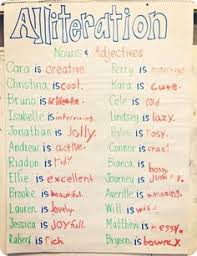 Alliteration
Nouns & Adjectives
Cara is creative.
Christina is cool.
Bruno is
Isabelle is
Jonathan is Jolly.
Andrew is active.
Rigdon is
Ellie is excellent
Brooke is beautiful.
Lauren is lovely.
Jessica is Joyfull.
Raheed is rich
Perry is
Kara is cute.
Cole is cold
Lindsey is lazy.
Rylie is rosy
Connor is
Bianca is bossy
Journey is
Averille is amazing.
Will is
Matthew is messy.
Bryson is